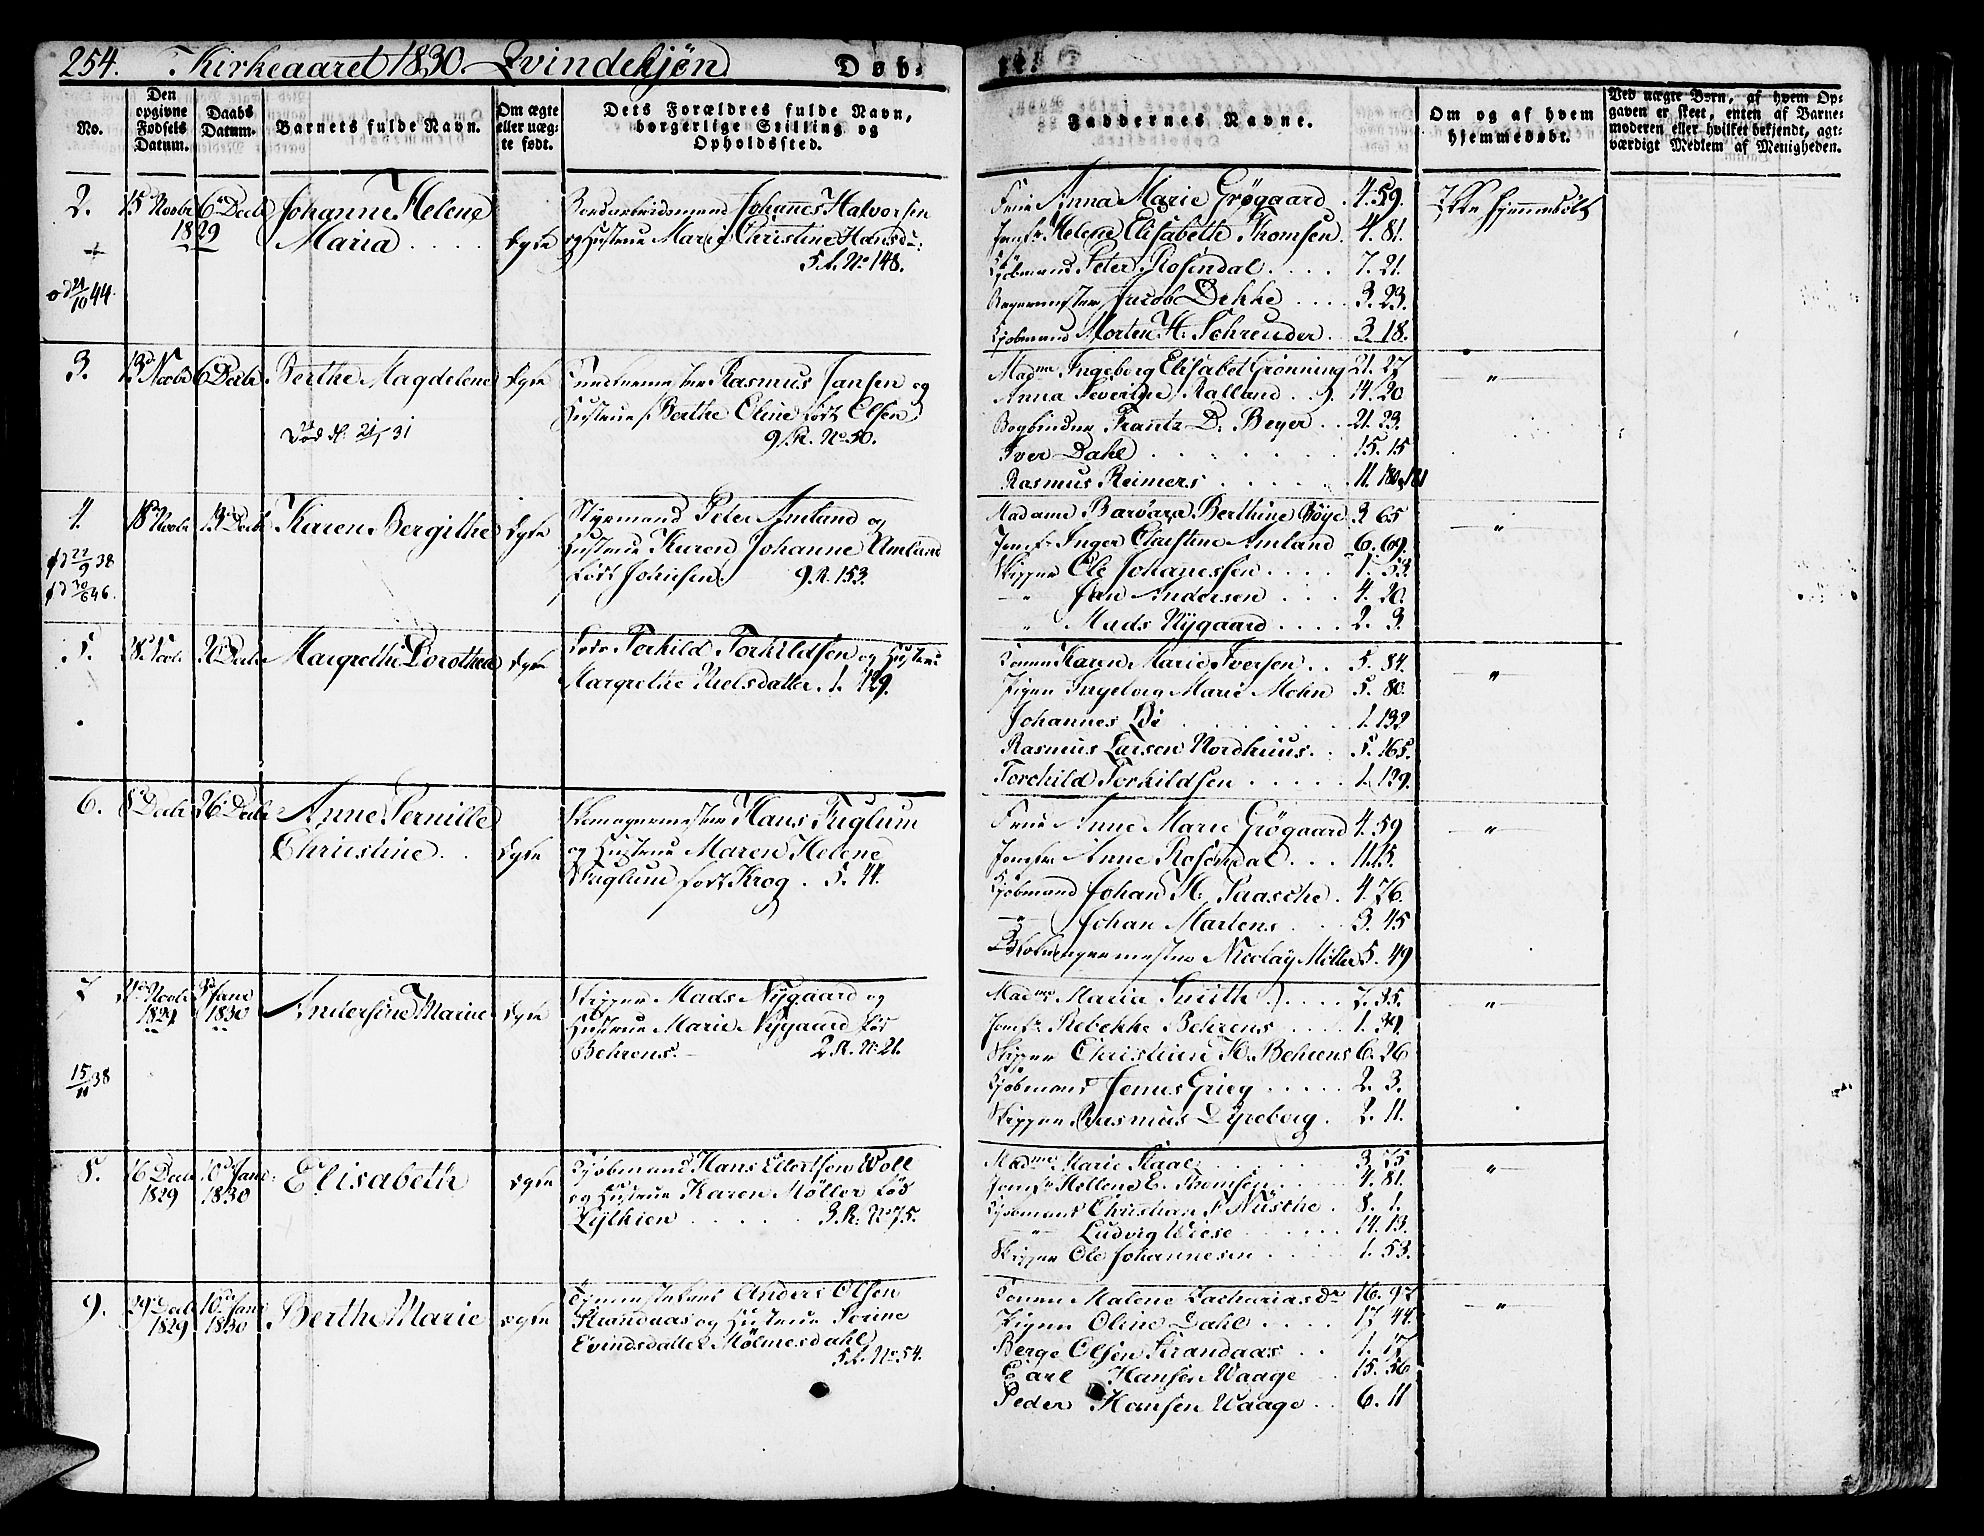 254. Kirkeaaret 1830. Qvindekjøn Døb-
No.
Den opgivne Fødsels Datum.
Daabs Datum.
Barnets fulde Navn.
Om ægte eller uæg- te født.
Dets Forældres fulde Navn, borgerlige Stilling og Opholdssted.
Faddernes Navne.
Om og af hvem hjemmedøbt.
Ved uægte Børn, af hvem Op-
gaven er skeet, enten af Barne-
moderen eller hvilket bekjendt, agt-
værdigt Medlem af Menigheden.
2. 15de Novbr 6te Decbr Johanne Helene
1829 Maria . . . . Ægte
21/10 44.
Johannes Halvorsen
og Hustrue Marie Christine Hansd:
5 R. No 148.
Frue Anna Marie Grøgaard . 4. 59.
Jomfr Helene Elisabeth Thomsen . 4. 81.
Kjøbmand Peter Rosendal . . . . 7. 21.
Jacob Dekke . . . . 3. 23.
Kjøbmand Morten H. Schreuder . . 3. 18.
Ikke hjemmedøbt
3. 13de Novbr 6 Decbr. Berthe Magdelene Ægte
Død d: 21/ 31
Rasmus Jansen og
Hustrue Berthe Oline født Olsen
9 R. No 50.
Madme Ingeborg Elisabet Grønning 21. 27
Anna Severine Ralland . . 14. 20
Bogbinder Frantz D. Beyer . . 21. 23.
Iver Dahl . . . . . . . 15. 15
Rasmus Reimers . . . . . 11. 180, 181
"
4. 18de Novbr 13de Decbr Karen Bergithe Ægte
22/9 38
30/6 46.
Styrmand Peter Amland og
Hustrue Karen Johanne Amland
født Johnsen. 9 R. 153.
Madame Barbara Berthine Bøye 3 65
Jomfr Inger Christine Amland 6. 69.
Skipper Ole Johannessen . . . . 1. 53.
" Jan Andersen . . . . 4. 20.
" Mads Nygaard . . . . 2. 3.
"
5. 28de Novbr 26de Decbr Margrethe Dorothea Ægte
Torkild Torkildsen og Hustrue
Margrethe Nielsdatter. 1. 129.
Konen Karen Marie Iversen . . 5. 84.
Pigen Ingeborg Marie Mohn 5. 80.
Johannes . . . . . . 1. 132
Rasmus Larsen Nordhuus . . 5. 165.
Torchild Torkildsen . . . . . 1. 129.
"
6. 8de Decbr 26 Decbr Anne Pernille
Christine . . Ægte
Skomagermester Hans Fuglum
og Hustrue Maren Helene
Fuglum født Krog . 5. 44.
Frue Anne Marie Grøgaard 4. 59
Jomfr Anne Rosendal . . . 11. 15.
Kjøbmand Johan H. Paasche . 4. 76.
" Johan Martens . . . 3. 45
Nicolay Möller 5. 49
"
7 Novbr 3de Janr Andersine Marine Ægte
1829 1830
15/11 38
Skipper Mads Nygaard og
Hustrue Marie Nygaard fød
Behrens. 2 R. No: 21.
Madme Maria Smith . . . . 7. 35.
Jomfr Rebekke Behrens . . . . 1. 39.
Skipper Christian H. Behrens 6. 26
Kjøbmand Jonus Grieg . . . . . 2. 3.
Skipper Rasmus Dyreborg . 2. 11.
"
8. 16 Decbr 10de Janr Elisabeth Ægte
1829 1830
Kjøbmand Hans Ellertsen Woll
og Hustrue Karen Møller fød
Zylkien . . . . . . 3. R: No 75.
Madme Marie Kaae . . . . . . 3. 75
Jomfr Hellene E. Thomsen . . . 4. 81.
Kjøbmand Christian F. Nüsche . 8. 1.
" Ludvig Wiese . . . . . . 14. 13.
Skipper Ole Johannesen . . . . 1. 53.
"
9. 29de Decbr 10de Janr Berthe Marie ægte
1829 1830
Anders Olsen
Strandaas og Hustrue Sorine
Evindsdatter Mølmesdahl
5 R. No 54.
Konen Malene Zachariasdr 16. 97
Pigen Oline Dahl . . . . 17 44.
Berge Olsen Strandaas . . 1. 17
Carl Hansen Waage . . 15. 56
Peder Hansen Waage . . 6. 11
"